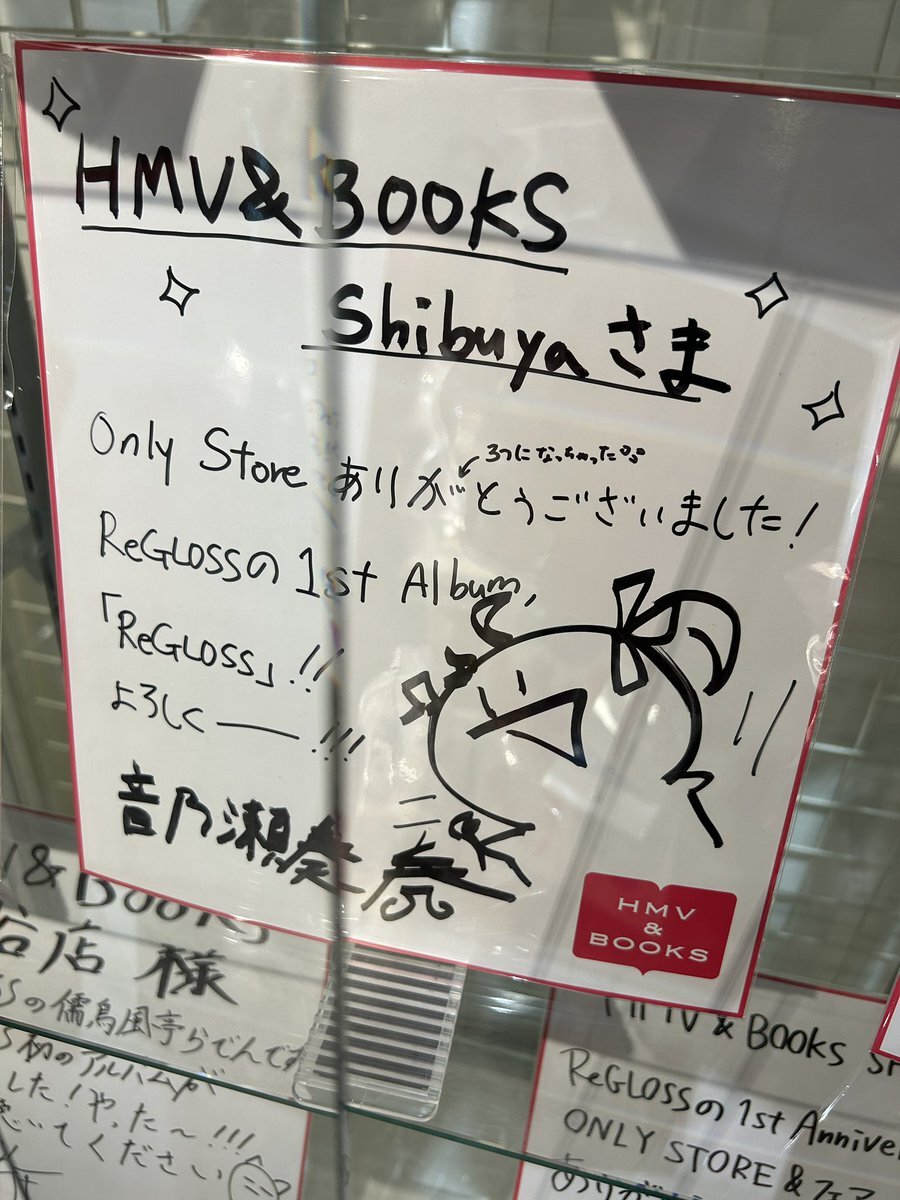 HMV&BOOKS
Shibuyaさま
3つになっちゃった
Only Store ありがとうございました!
ReGLOSSの1st Album,
「ReGLOSS」!!
よろしくー!!!
音乃瀬奏
HMV
&
BOOKS
& BOOKS
谷店 様
Sの儒烏風亭らでんです
S初のアルバムが
した!やった〜!!!
聴いてください
HMV & BOOKS SH
ReGLOSSの1st Anniver
ONLY STORE & フェ
ありがと